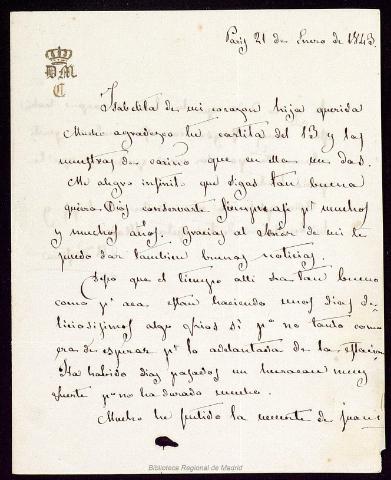 Paris 21 de Enero de 1843.
DM
C
Isabelita de mi corazon hija querida
Mucho agradezco tu cartita del 13 y las
muestras de cariño que en ella me das.
Me alegro infinito que sigas tan buena
quiera Dios conservarte siempre asi pr muchos
y muchos años. Gracias al Señor de mi te
puedo dar tambien buenas noticias.
Creo que el tiempo alli sea tan bueno
como pr aca estan haciendo unos dias de
liciosisimos algo frios si po no tanto como
era de esperar pr lo adelantada de la estacion
Ha habido dias pasados un huracan muy
fuerte po no ha durado mucho.
Mucho he sentido la muerte de
Biblioteca Regional de Madrid